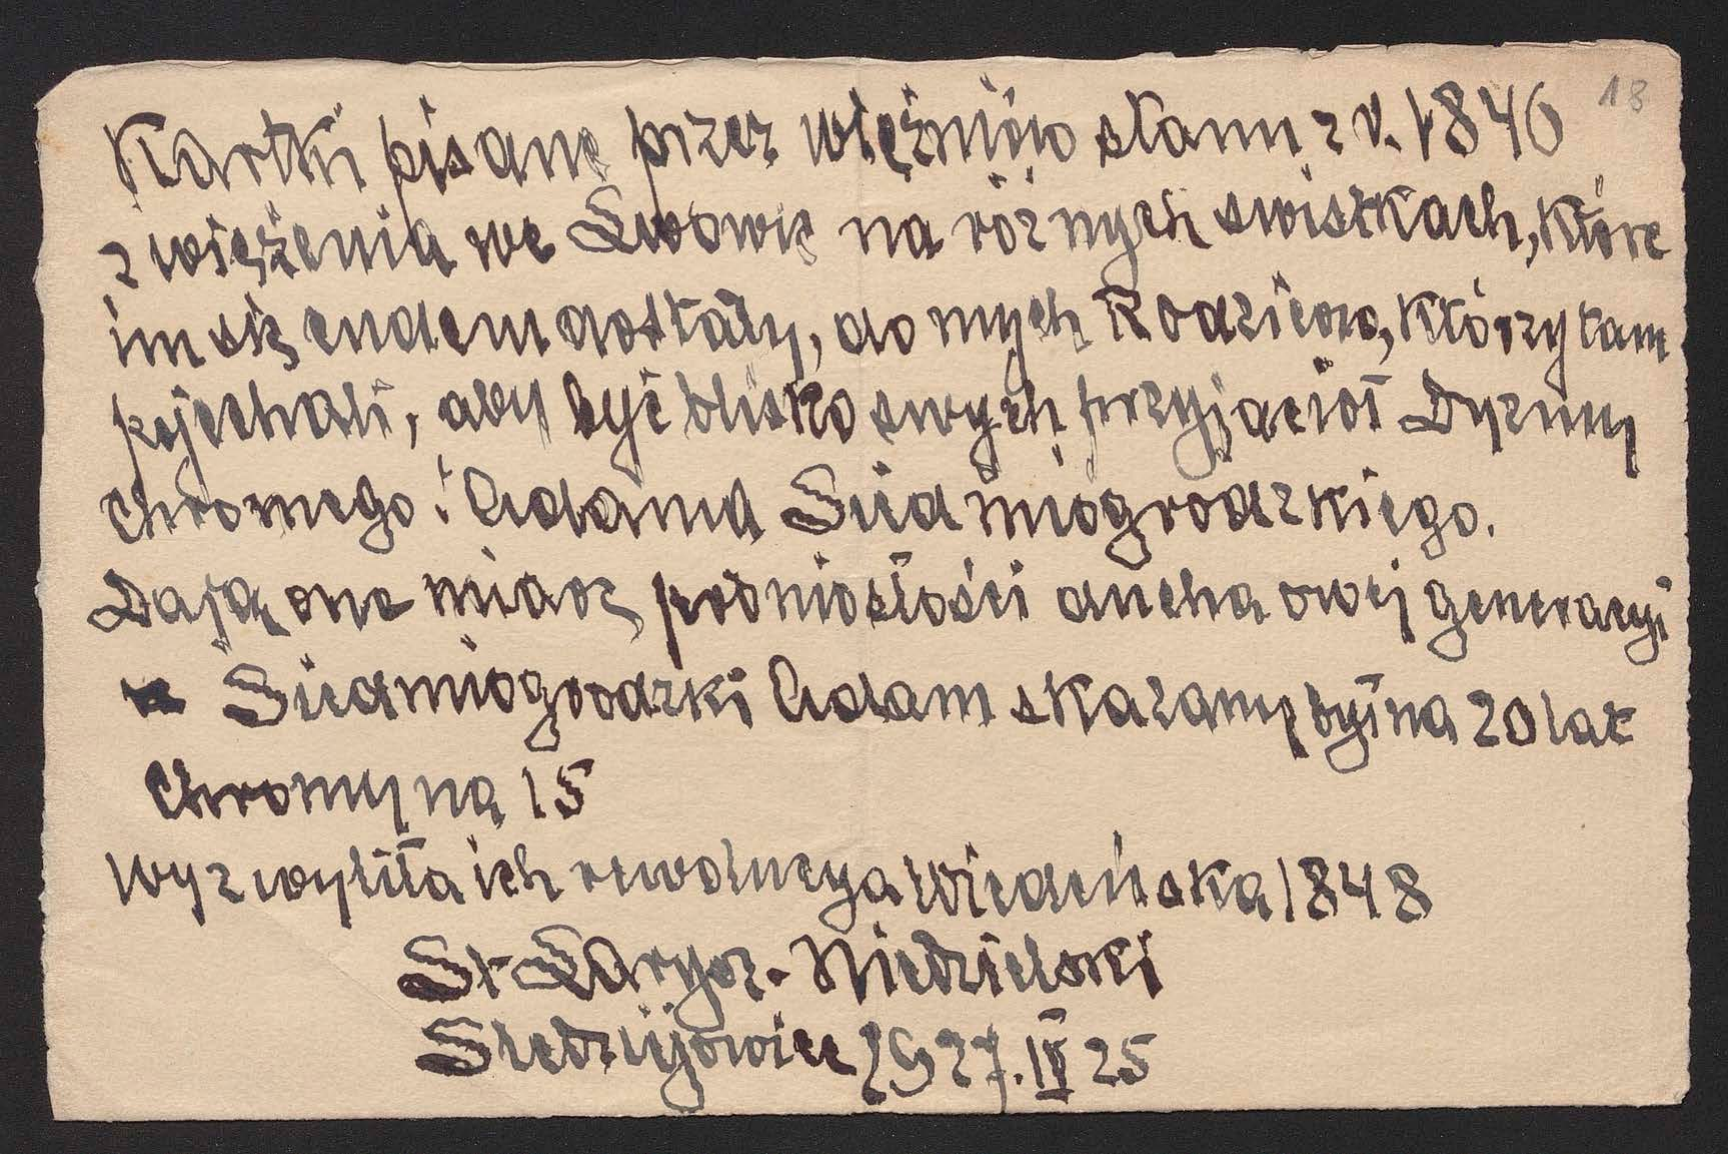 18
Kartki pisane przez więźniów stanu z r. 1846
z więzienia we Lwowie na różnych świstkach, które
im się cudem dostały, do mych Rodziców, którzy tam
pojechali, aby być blisko swych przyjaciół Dyzmy
Chromego i Adama Siedmiogrodzkiego.
Dają one miarę podniosłości ducha owej generacyi
Siedmiogrodzki Adam skazany był na 20 lat
Chromy na 15
Wyzwoliła ich rewolucya Wiedeńska 1848
St Larysz. Niedzielski
Śledziejowice 1927. IV 25